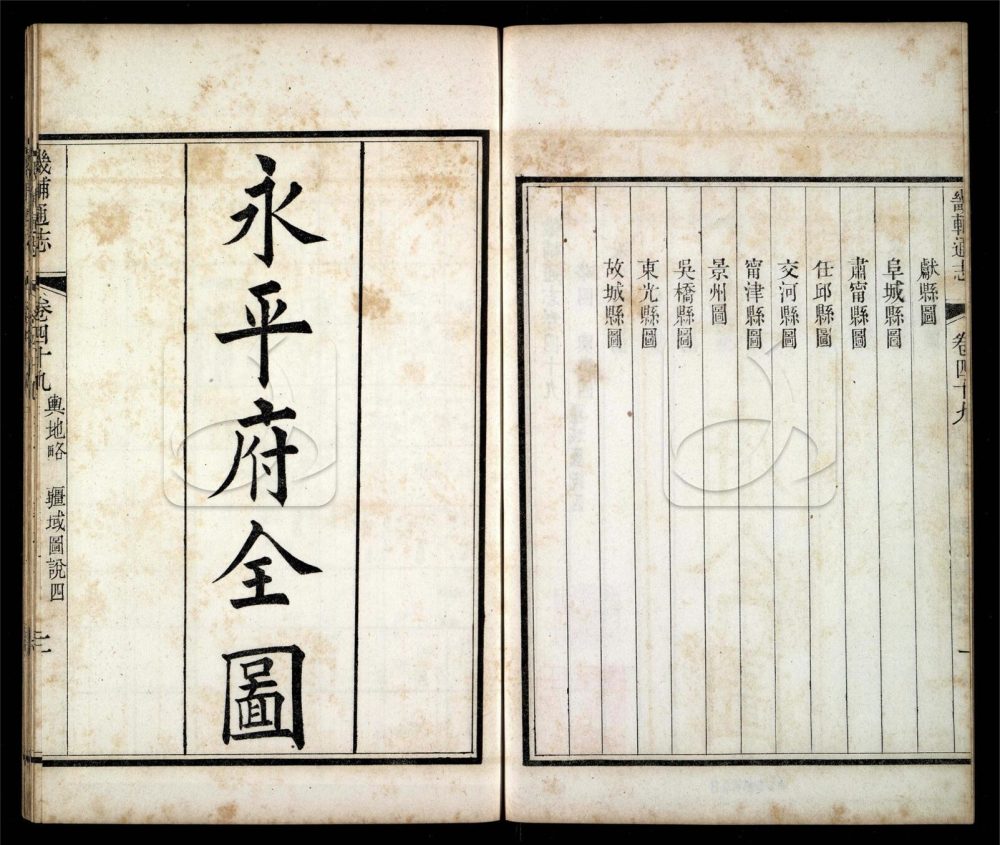 畿輔通志
卷四十九
一
獻縣圖
阜城縣圖
肅甯縣圖
任邱縣圖
交河縣圖
甯津縣圖
景州圖
吳橋縣圖
東光縣圖
故城縣圖
永平府全圖
畿輔通志
卷四十九
輿地略
疆域圖說四